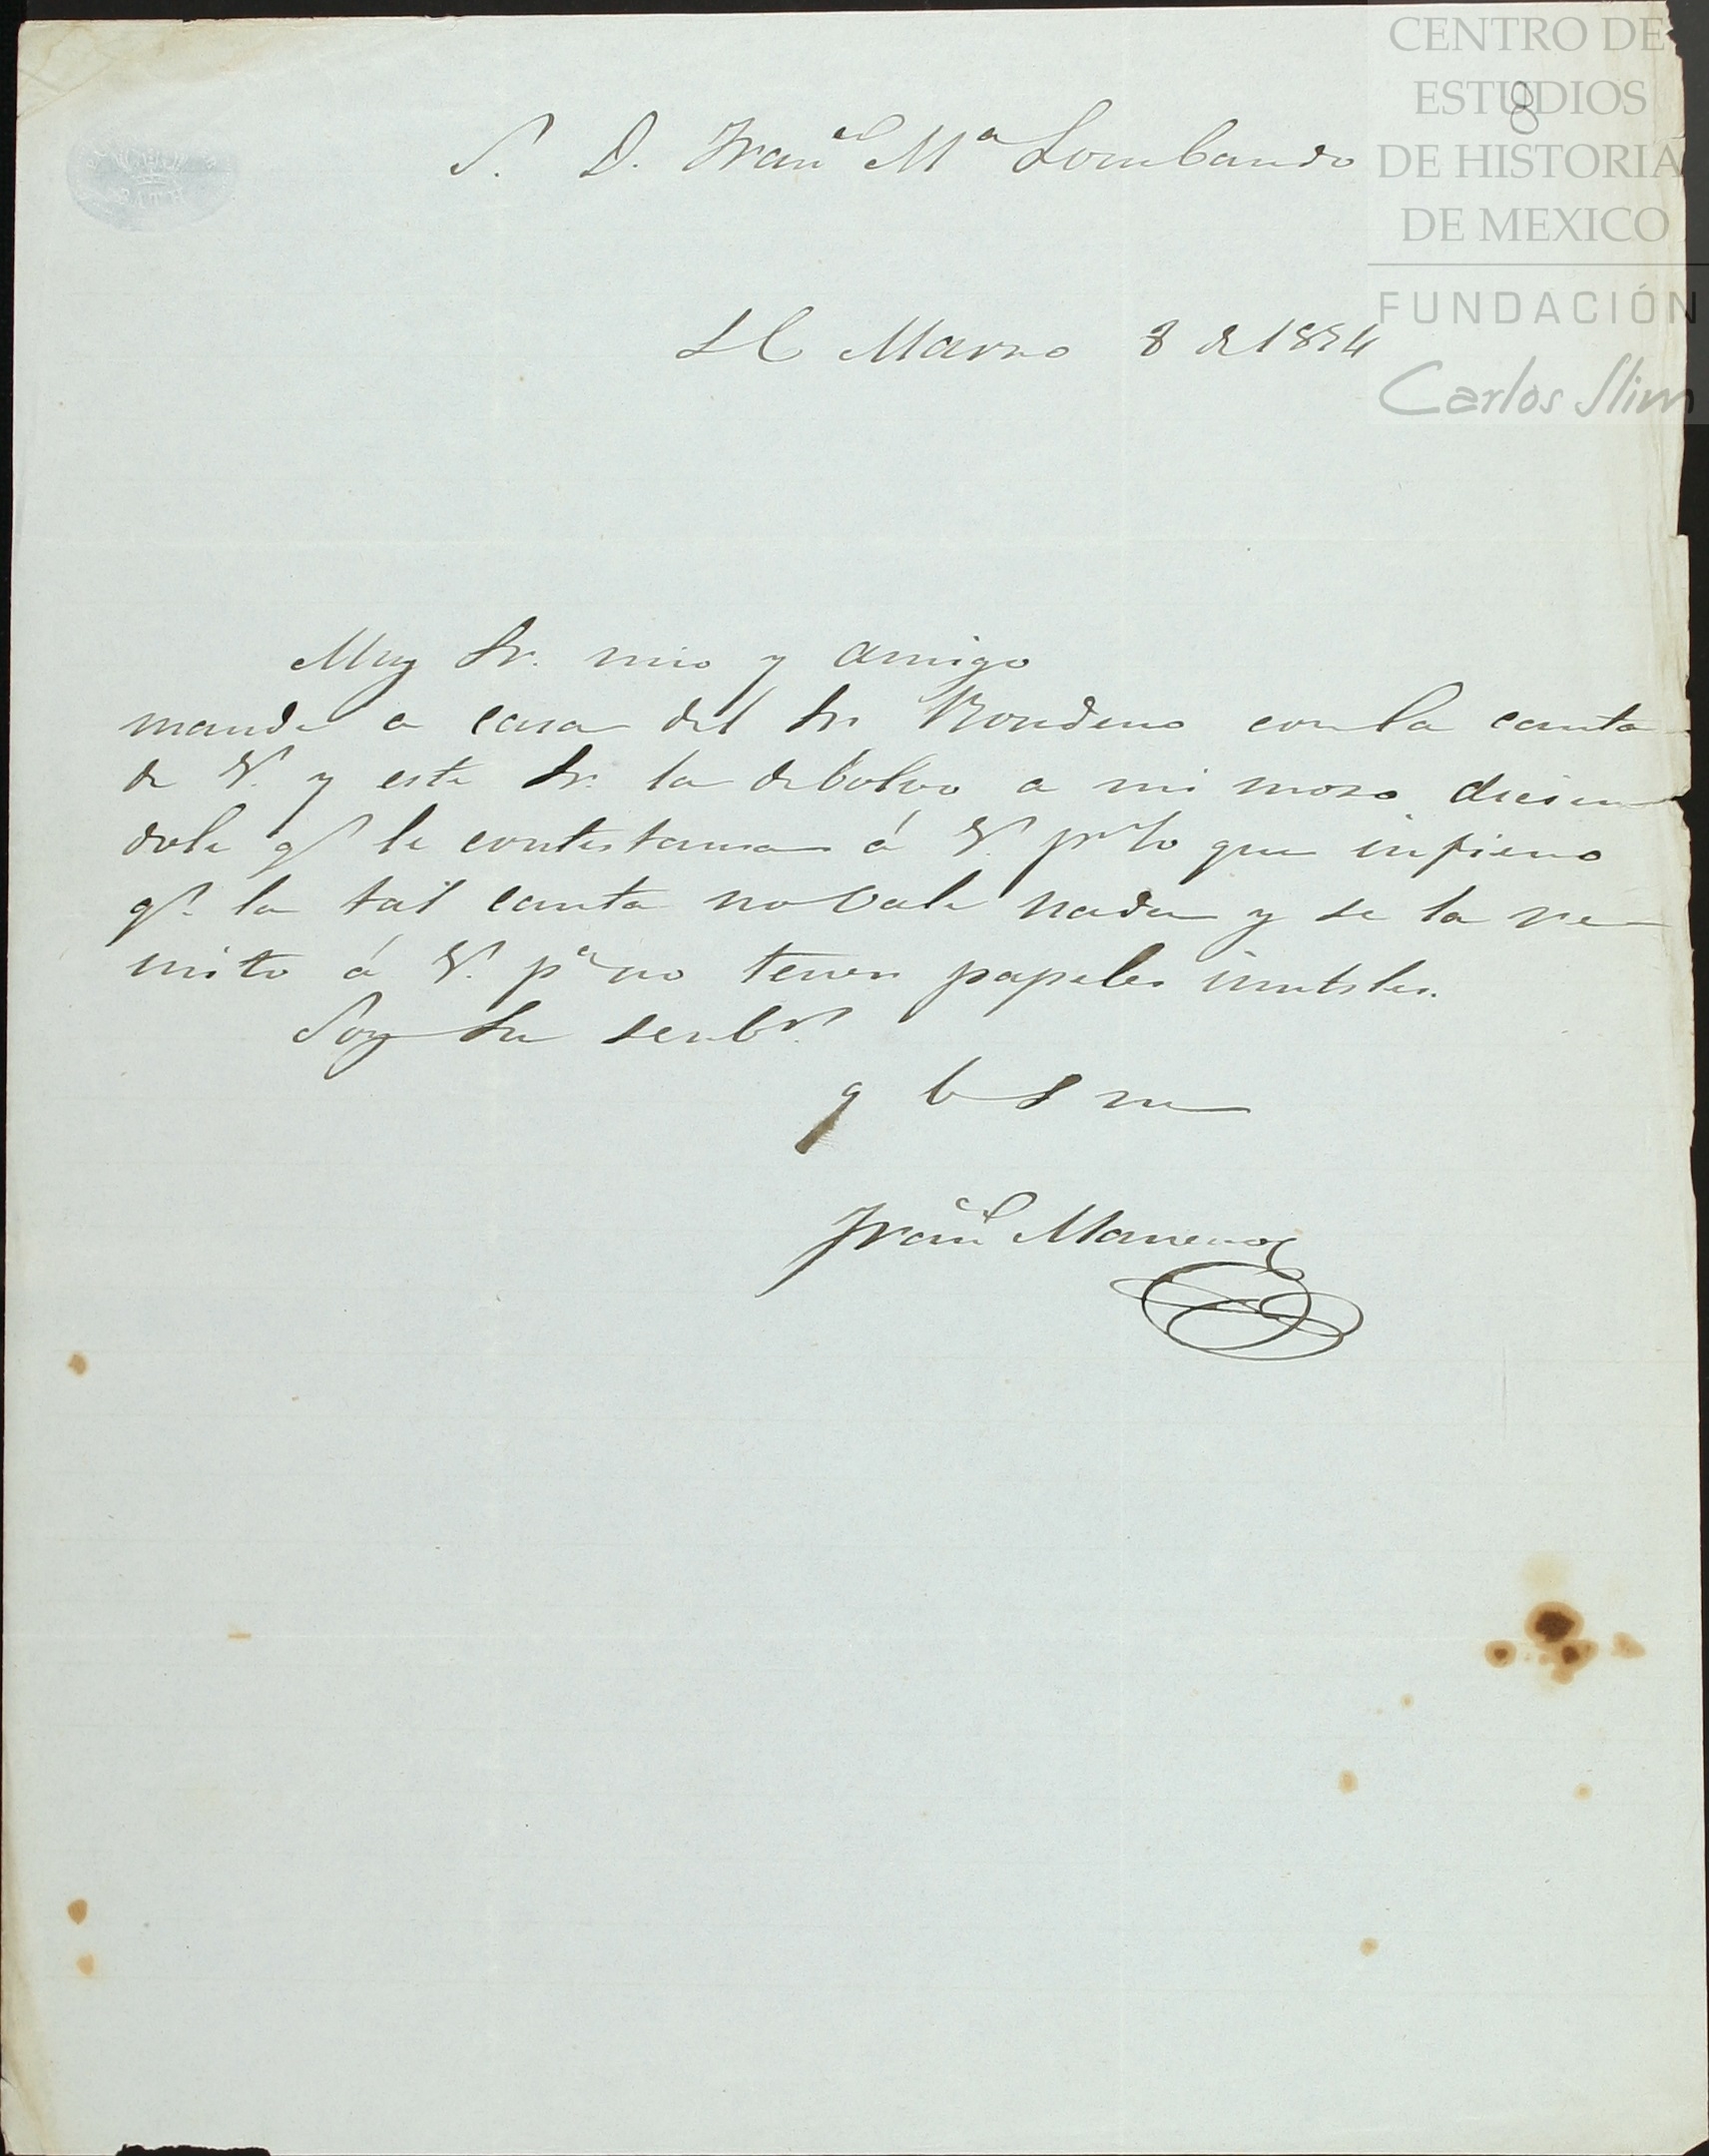 CENTRO DE
ESTUDIOS
DE HISTORIA
DE MEXICO
FUNDACIÓN
Carlos Slim
8
S. D. Franco Ma Lombardo
SC Marzo 8 de 1854
Muy Sr. mio y amigo
mande a casa del Sr. Rondero con la carta
de V. y este Sr. la debolvio a mi moso dicien
dole qe. le contestaria á V. pr lo que infiero
qe. la tal carta no vale nada y se la re
mito á V. pa no tener papeles inutiles.
Soy su serbr.
q b s m
Franco